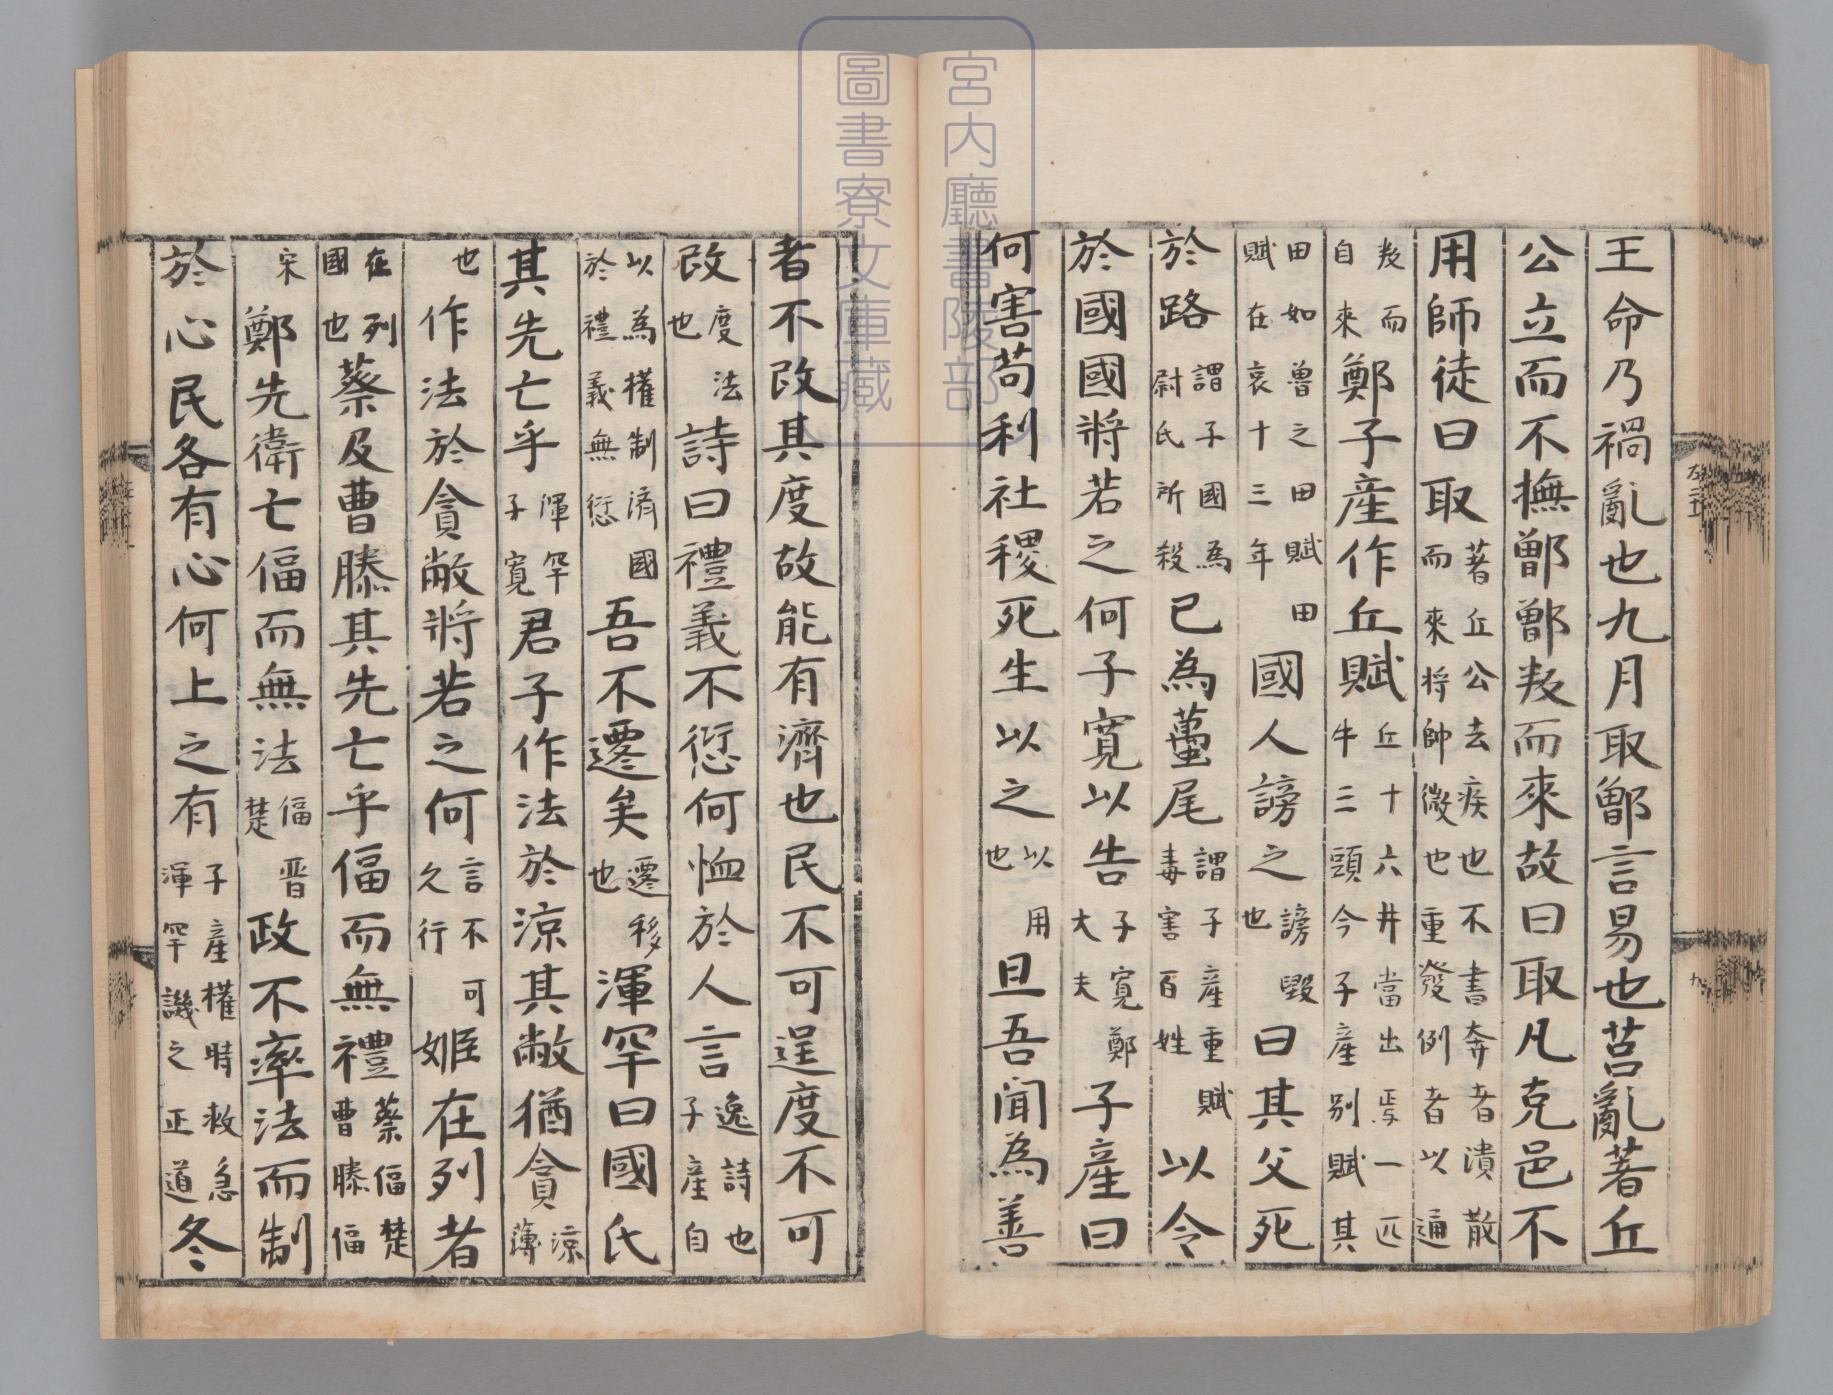 王命乃禍亂也九月取鄫言易也莒亂著丘
公立而不撫鄫鄫叛而來故曰取凡克邑不
用師徒曰取著丘公去疾也不書奔者潰散而來將帥微也重發例者以通
叛而自來鄭子產作丘賦丘十六井當出馬一匹牛三頭今子產別賦其
田如魯之田賦田賦在哀十三年國人謗之謗毀也曰其父死
於路謂子國為尉氏所殺已為蠆尾謂子產重賦毒害百姓以令
於國國將若之何子寬以告子寬鄭大夫子產曰
何害苟利社稷死生以之以用也旦吾聞為善
者不改其度故能有濟也民不可逞度不可
改度法也詩曰禮義不愆何恤於人言逸詩也子產自
以為權制濟國於禮義無愆吾不遷矣遷移也渾罕曰國氏
其先亡乎渾罕子寬君子作法於涼其敝猶貪涼薄
也作法於貪敝將若之何言不可久行姬在列者
在列國也蔡及曹滕其先亡乎偪而無禮蔡偪楚曹滕偪
宋鄭先衛亡偪而無法偪晉楚政不率法而制
於心民各有心何上之有子產權時救急渾罕譏之正道冬
宮内廳書陵部
圖書寮文庫藏